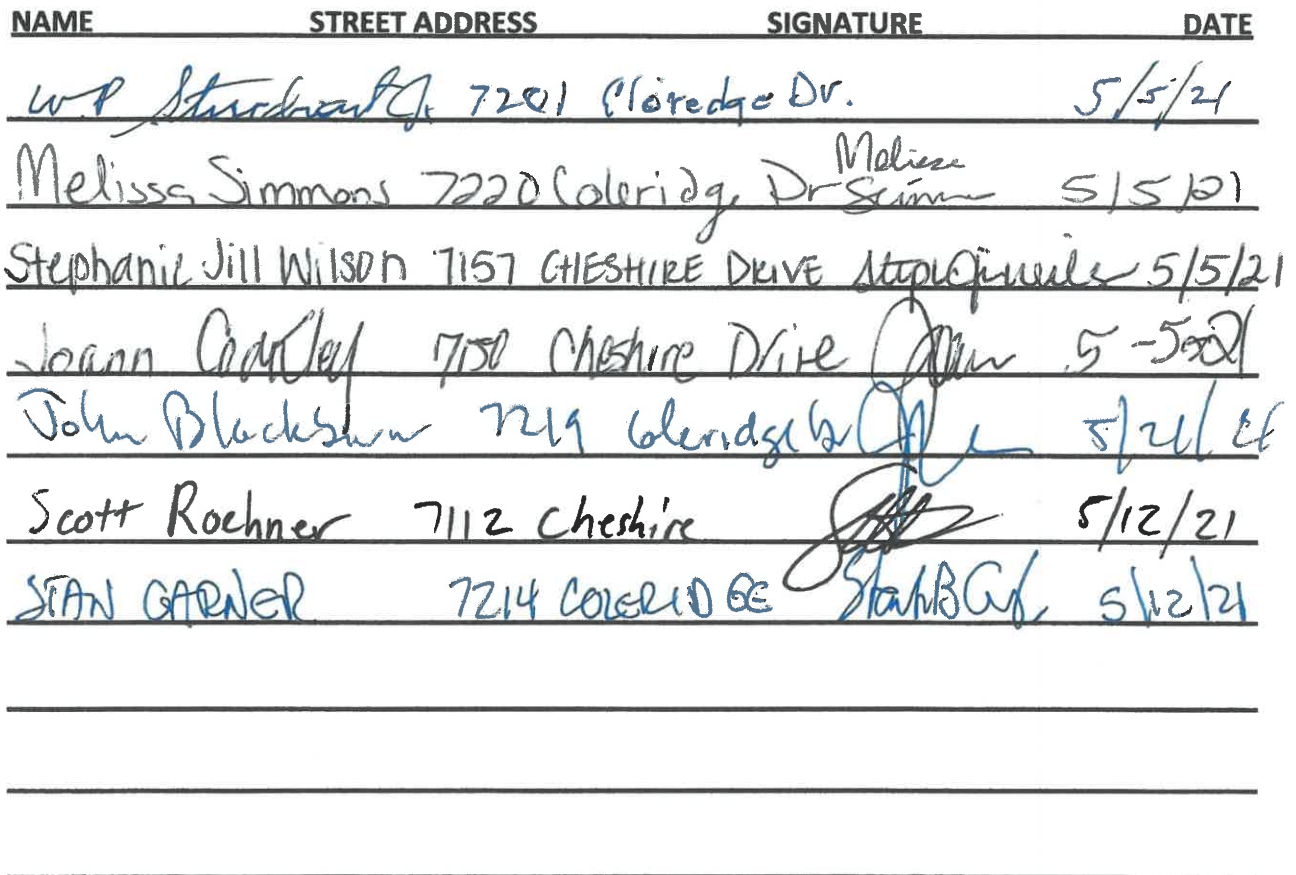 NAME STREET ADDRESS SIGNATURE DATE
W.P. Sturdivant Jr. 7201 Cloredge Dr. 5/5/21
Melissa Simmons 7220 Coleridge Dr Melissa 5/5/21
Stephanie Jill Wilson 7157 CHESHIRE DRIVE 5/5/21
Joann 7150 Cheshire Drive 5-5-21
John Blackburn 7219 Coleridge Dr 5/21/21
Scott Rochner 7112 Cheshire 5/12/21
STAN GARNER 7214 COLERIDGE 5/12/21